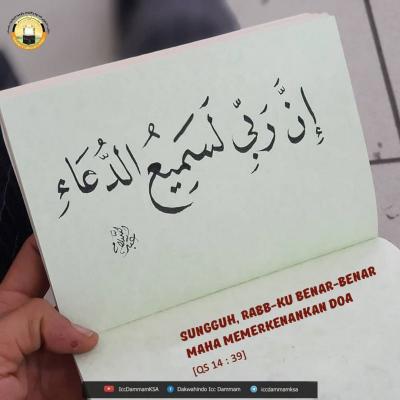 إِنَّ رَبِّي لَسَمِيعُ الدُّعَاءِ
SUNGGUH, RABB-KU BENAR-BENAR
MAHA MEMERKENANKAN DOA
[QS 14 : 39]
IccDammamKSA
Dakwahindo Icc Dammam
iccdammamksa